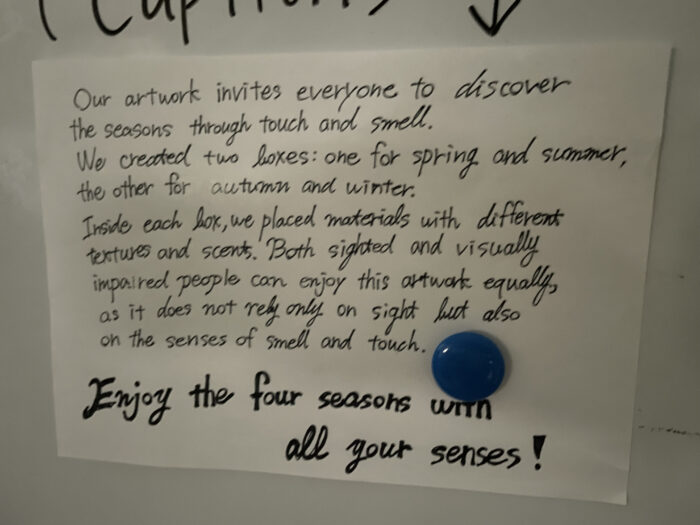 (Captions ↓
Our artwork invites everyone to discover
the seasons through touch and smell.
We created two boxes: one for spring and summer,
the other for autumn and winter.
Inside each box, we placed materials with different
textures and scents. Both sighted and visually
impaired people can enjoy this artwork equally,
as it does not rely only on sight but also
on the senses of smell and touch.
Enjoy the four seasons with
all your senses!